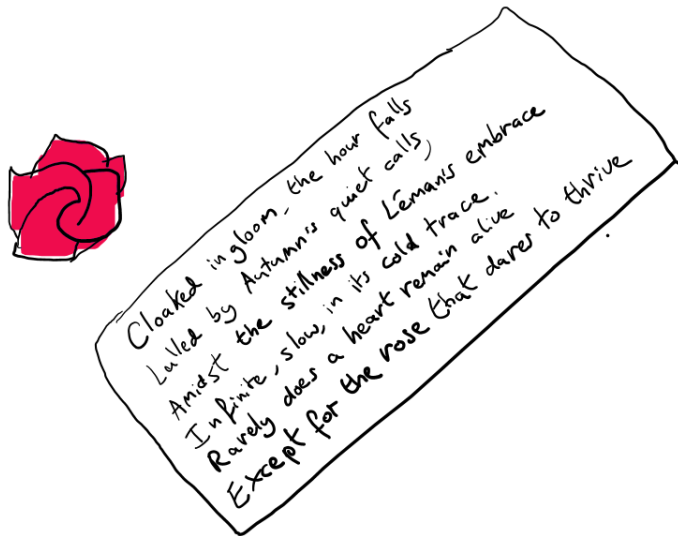 Cloaked in gloom, the hour falls
Lulled by Autumn's quiet calls,
Amidst the stillness of Léman's embrace
Infinite, slow, in its cold trace.
Rarely does a heart remain alive
Except for the rose that dares to thrive